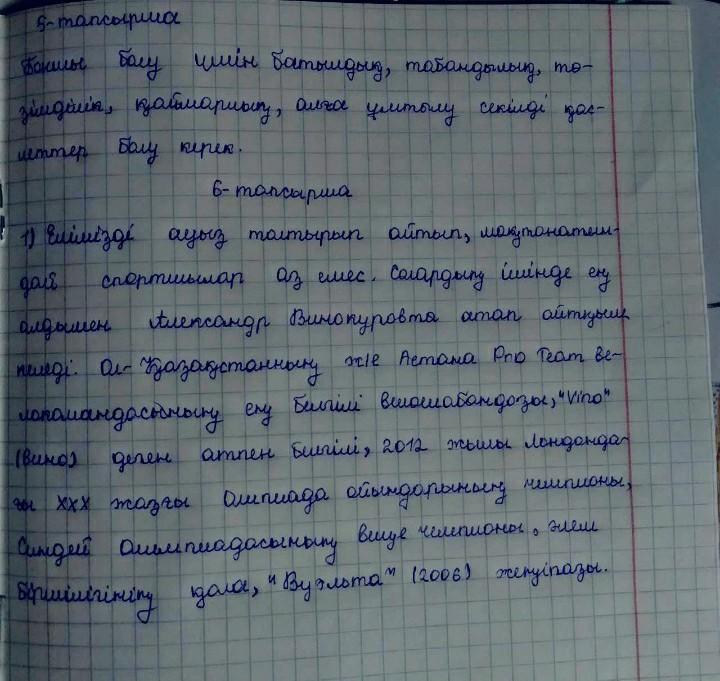 5-тапсырма
Боксшы болу үшін батылдық, табандылық, тө-
зімділік, қайсарлық, алға ұмтылу секілді қас-
иеттер болу керек.
6-тапсырма
1) Елімізді ауыз толтырып айтып, мақтанатын-
дай спортшылар аз емес. Солардың ішінде ең
алдымен Александр Винокуровта атап айтқым
келеді. Ол- Қазақстанның ж/е Астана Pro Team ве-
локомандасының ең белгілі велошабандозы, "Vino"
(Вино) деген атпен белгілі, 2012 жылы Лондонда-
ғы XXX жазғы Олмпиада ойындарының чемпионы,
Сидней Олимпиадасының вице чемпионы, әлем
біріншілігінің қола, "Вуэльта" (2006) жеңімпазы.